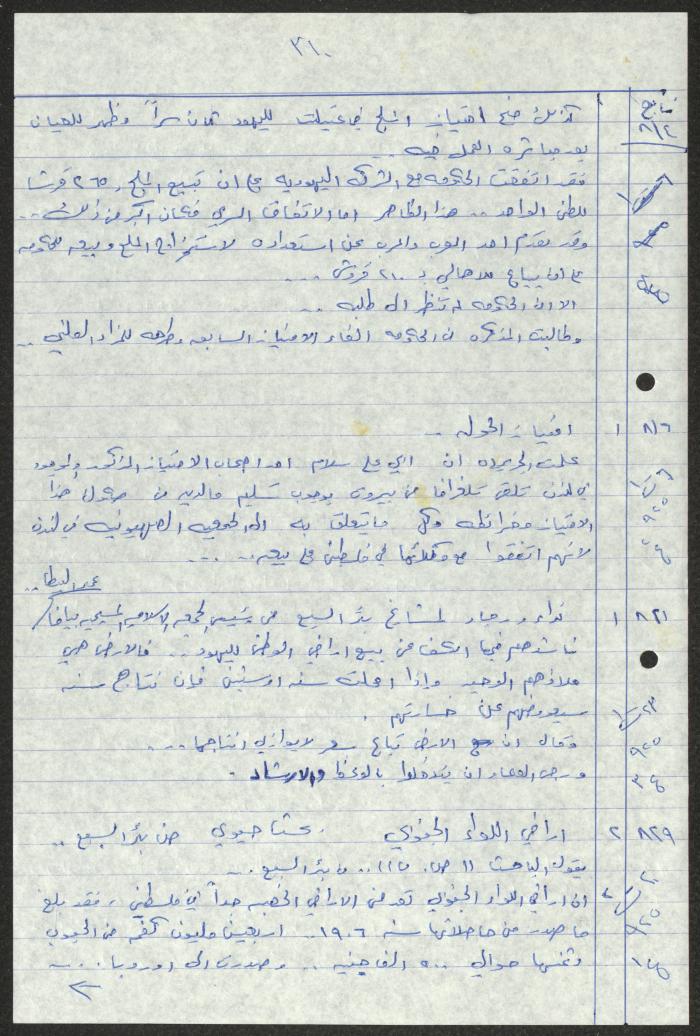 ٣١٠
تابع ٨/٢
كذلك منح امتياز الملح في عتليت لليهود كان سراً وظهر للعيان
بعد مباشرة العمل فيه ..
فقد اتفقت الحكومة مع الشركة اليهودية على ان تبيع الملح بـ ٢٦٥ قرشا
للطن الواحد .. هذا الظاهر اما الاتفاق السري فكان اكثر من ذلك ..
وقد تقدم احد العرب واعرب عن استعداده لاستخراج الملح وبيعه للحكومة
على ان يباع للاهالي بـ ٢٠٠ قروش ...
الا ان الحكومة لم تنظر الى طلبه ..
وطالبت المذكرة من الحكومة الغاء الامتياز السابق وطرحه للمزاد العلني ..
٨/٦ ١ امتياز الحولة ..
علمت الجريدة ان علي سلام احد اصحاب الامتياز المذكور والموجود
في لندن تلقى تلغرافا من بيروت بوجوب تسليم مالديه من صكوك هذا
الامتياز وخرائطه وكل مايتعلق به الى الجمعية الصهيونية في لندن
لانهم اتفقوا مع وكلائها في فلسطين على بيعه ....
عمر البيطار ..
٨/٢١ ١ نداء ورجاء لمشايخ بئر السبع من رئيس الجمعية الاسلامية المسيحية بيافا /
ناشدهم فيها الكف عن بيع اراضي الوطن لليهود .. فالارض هي
ملاذهم الوحيد واذا امحلت سنة او سنتين فإن نتاج سنة
سيعوضهم عن خسارتهم .
وقال ان الارض تباع بسعر لايوازي انتاجها ...
ورجى العلماء ان يتدخلوا بالوعظ والارشاد .
٨/٢٩ ٢ اراضي اللواء الجنوبي . بحث حيوي من بئر السبع ..
يقول الباحث .. بئر السبع ..
ان اراضي اللواء الجنوبي تعد من الاراضي الخصبة جداً في فلسطين ، فقد بلغ
ما صدر من حاصلاتها سنة ١٩٠٦ .. اربعين مليون كغم من الحبوب
وثمنها حوالي ٢٠٠ الف جنيه .. وصدرت الى اوروبا ....